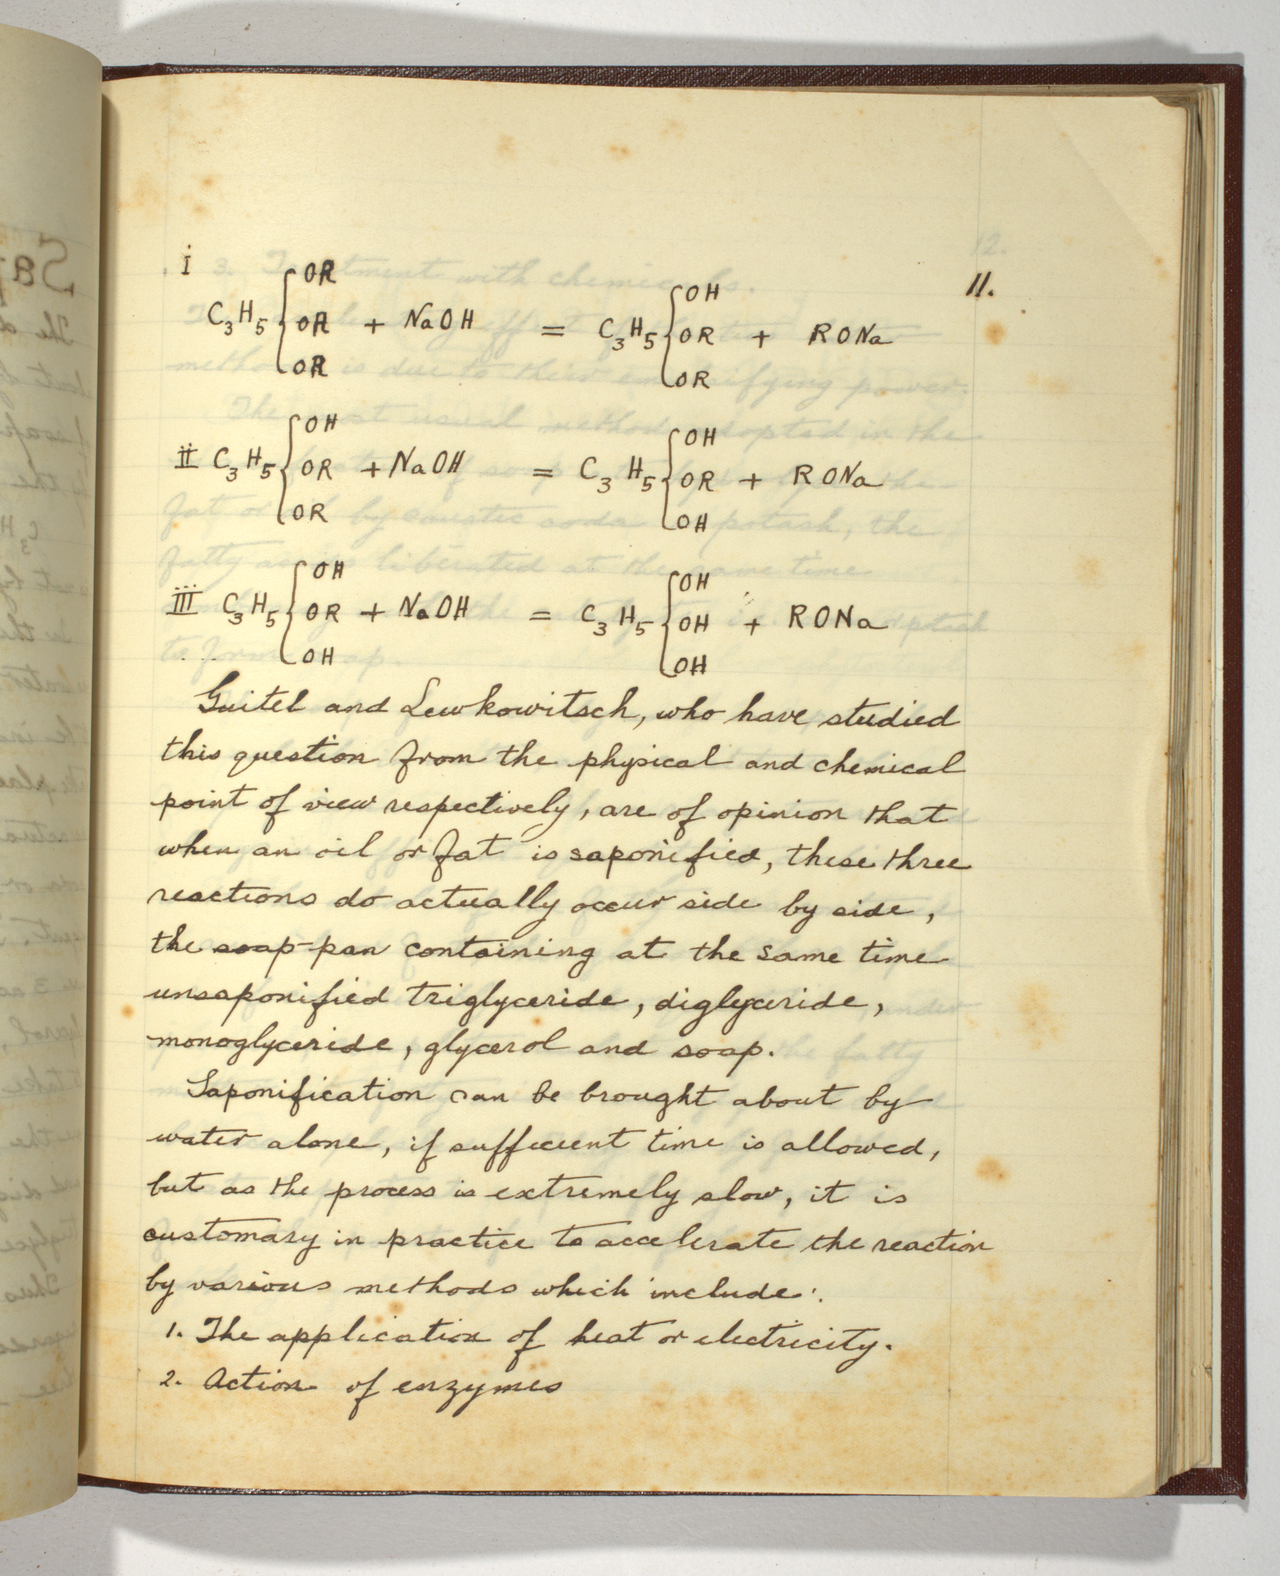 11.
i
C3H5 { OR OR OR + NaOH = C3H5 { OH OR OR + RONa
ii C3H5 { OH OR OR + NaOH = C3H5 { OH OR OH + RONa
iii C3H5 { OH OR OH + NaOH = C3H5 { OH OH OH + RONa
Geitel and Lewkowitsch, who have studied
this question from the physical and chemical
point of view respectively, are of opinion that
when an oil or fat is saponified, these three
reactions do actually occur side by side,
the soap-pan containing at the same time
unsaponified triglyceride, diglyceride,
monoglyceride, glycerol and soap.
Saponification can be brought about by
water alone, if sufficient time is allowed,
but as the process is extremely slow, it is
customary in practice to accelerate the reaction
by various methods which include:
1. The application of heat or electricity.
2. Action of enzymes